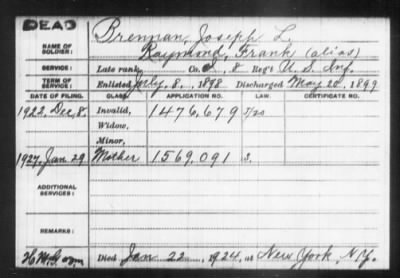 DEAD
Brennan, Joseph L.
NAME OF SOLDIER: Raymond, Frank (alias)
SERVICE: Late rank, Co. 8 Reg't U. S. Inf.
TERM OF SERVICE: Enlisted July 8, 1898 Discharged May 20, 1899
DATE OF FILING. CLASS. APPLICATION NO. LAW. CERTIFICATE NO.
1922, Dec, 8. Invalid, 1476,679
Widow,
Minor,
1927, Jan 29 Mother 1569,091
ADDITIONAL SERVICES:
REMARKS:
Died Jan 22, 1924, at New York, N.Y.